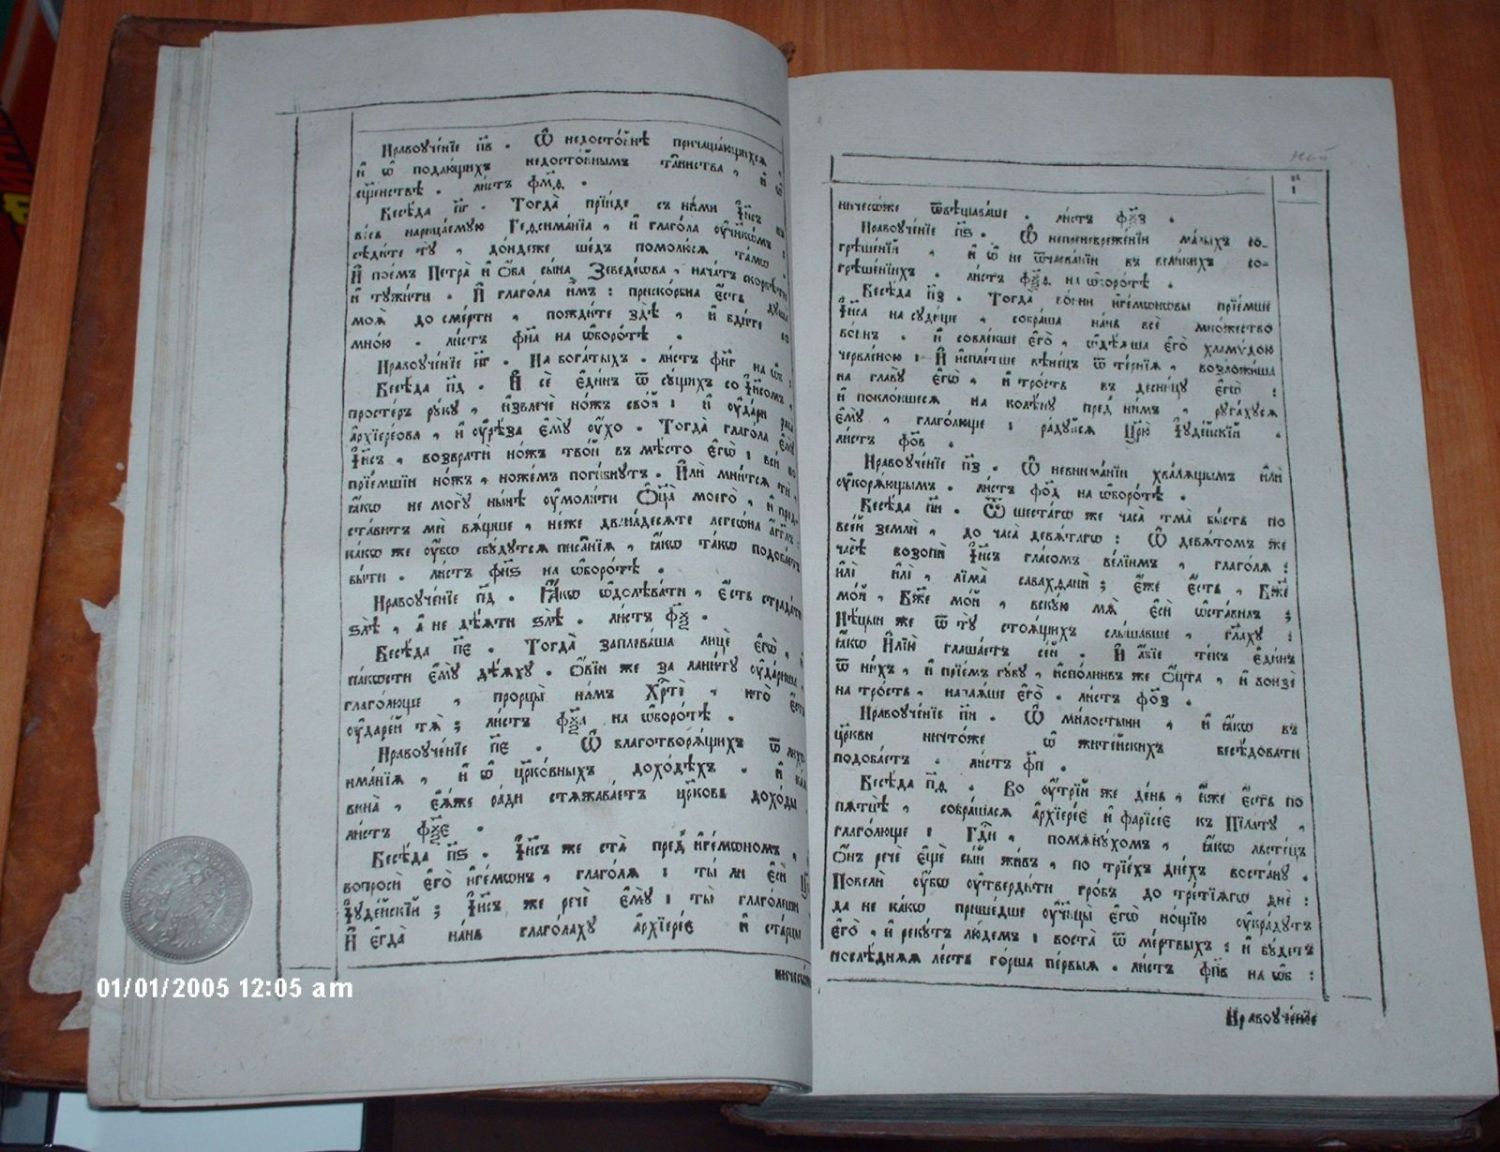 Нравоуче́нїе п҃в . Ѿ недосто́йнѣ причаща́ющихсѧ ,
и҆ ѡ҆ подаю́щихъ недосто́йнымъ та̑инства , и҆ ѡ҆
сщ҃е́нствѣ . ли́стъ фм҃ѳ .
Бесѣ́да п҃г . Тогда̀ прїи́де съ ни́ми І҆и҃съ въ
ве́сь нарица́емую Геѳсима́нїа , и҆ глаго́ла ᲂу҆чн҃кѡ́мъ ,
сѣди́те ту̀ , до́ндеже ше́дъ помолю́сѧ та́мѡ .
И҆ пое́мъ Петра̀ и҆ ѻ҆́ба сы̑на Зеведе́ѡва , нача́тъ скорбѣ́ти
и҆ тужи́ти . И҆ глаго́ла и҆̀мъ : приско́рбна є҆́сть душа̀
моѧ̀ до сме́рти , пожди́те здѣ̀ , и҆ бди́те со
мно́ю . ли́стъ фн҃а на ѡ҆боро́тѣ .
Нравоуче́нїе п҃г . На бога́тыхъ . ли́стъ фн҃г на ѡ҆б :
Бесѣ́да п҃д . И҆ сѐ є҆ди́нъ ѿ су́щихъ со І҆и҃сомъ ,
просте́ръ ру́ку , и҆звлечѐ но́жъ сво́й : и҆ ᲂу҆да́ри раба̀
а҆рхїере́ова , и҆ ᲂу҆рѣ́за є҆му̀ ᲂу҆́хо . Тогда̀ глаго́ла є҆му̀
І҆и҃съ , возвратѝ но́жъ тво́й въ мѣ́сто є҆гѡ̀ : всѝ бо
прїе́мшїи но́жъ , ноже́мъ поги́бнутъ . И҆лѝ мни́тсѧ тѝ ,
ꙗ҆́кѡ не могу̀ ны́нѣ ᲂу҆моли́ти Ѻ҆ц҃а̀ моего̀ , и҆ пред-
ста́витъ мѝ вѧ́щше , не́же двана́десѧте легеѡ́на а҆́гг҃лъ :
ка́кѡ же ᲂу҆̀бѡ сбу́дутсѧ писа̑нїѧ , ꙗ҆́кѡ та́кѡ подоба́етъ
бы́ти . ли́стъ фн҃ѕ на ѡ҆боро́тѣ .
Нравоуче́нїе п҃д . Ꙗ҆́кѡ ѡ҆долѣва́ти , є҆́сть страда́ти
ѕлѣ̀ , а҆ не дѣ́ѧти ѕлѣ̀ . ли́стъ фѯ҃ .
Бесѣ́да п҃є . Тогда̀ заплева́ша лицѐ є҆гѡ̀ , и҆
па́кѡсти є҆му̀ дѣ́ѧху . Ѻ҆́вїи же за лани́ту ᲂу҆да́риша ,
глаго́люще , прорцы̀ на́мъ Хрⷭ҇тѐ , кто̀ є҆́сть
ᲂу҆даре́й тѧ̀ ; ли́стъ фѯ҃а на ѡ҆боро́тѣ .
Нравоуче́нїе п҃є . Ѿ благотворѧ́щихъ ѿ лихо-
има́нїѧ , и҆ ѡ҆ цр҃ко́вныхъ дохо́дѣхъ . и҆ ка́ѧ
вина̀ , є҆ѧ́же ра́ди стѧжава́етъ цр҃ковь дохо́ды
ли́стъ фѯ҃є .
Бесѣ́да п҃ѕ . І҆и҃съ же ста̀ пред̾ и҆ге́мѡномъ , и҆
вопросѝ є҆го̀ и҆ге́мѡнъ , глаго́лѧ : ты́ ли є҆сѝ Цр҃ь
І҆уде́йскїй ; І҆и҃съ же речѐ є҆му̀ : ты̀ глаго́леши .
И҆ є҆гда̀ на́нь глаго́лаху а҆рхїере́є и҆ ста́рцы
ничесѡ́же
ничесѡ́же ѿвѣщава́ше . ли́стъ фѯ҃з .
Нравоуче́нїе п҃ѕ . Ѿ непренебреже́нїи ма́лыхъ со-
грѣше́нїй , и҆ ѡ҆ не ѿча́ѧванїи въ вели́кихъ со-
грѣше́нїихъ . ли́стъ фѯ҃ѳ на ѡ҆боро́тѣ .
Бесѣ́да п҃з . Тогда̀ во́ини и҆ге́мѡновы прїе́мше
І҆и҃са на суди́ще , собра́ша на́нь всѐ мно́жество
во́инъ . и҆ совле́кше є҆го̀ , ѡ҆дѣ́ѧша є҆го̀ хлами́дою
червле́ною : И҆ и҆спле́тше вѣне́цъ ѿ те́рнїѧ , возложи́ша
на главу̀ є҆гѡ̀ , и҆ тро́сть въ десни́цу є҆гѡ̀ :
и҆ покло́ншесѧ на колѣ́ну пред̾ ни́мъ , руга́хусѧ
є҆му̀ , глаго́люще : ра́дуйсѧ Цр҃ю̀ І҆уде́йскїй .
ли́стъ фо҃в .
Нравоуче́нїе п҃з . Ѿ невнима́нїи хва́лѧщымъ и҆лѝ
ᲂу҆корѧ́ющымъ . ли́стъ фо҃д на ѡ҆боро́тѣ .
Бесѣ́да п҃и . Ѿ шеста́гѡ же часа̀ тма̀ бы́сть по
все́й землѝ , до часа̀ девѧ́тагѡ : Ѿ девѧ́томъ же
часѣ̀ возопѝ І҆и҃съ гла́сомъ ве́лїимъ , глаго́лѧ :
и҆лѝ и҆лѝ , лїма̀ савахѳанѝ ; є҆́же є҆́сть , Бж҃е
мо́й , Бж҃е мо́й , вску́ю мѧ̀ є҆сѝ ѡ҆ста́вилъ ;
Нѣ́цыи же ѿ ту̀ стоѧ́щихъ слы́шавше , гл҃аху :
ꙗ҆́кѡ И҆лїю̀ глаша́етъ се́й . И҆ а҆́бїе те́къ є҆ди́нъ
ѿ ни́хъ , и҆ прїе́мъ гу́бу , и҆спо́лнивъ же ѻ҆́цта , и҆ вонзѐ
на тро́сть , напаѧ́ше є҆го̀ . ли́стъ фо҃з .
Нравоуче́нїе п҃и . Ѿ ми́лостыни , и҆ ꙗ҆́кѡ въ
цр҃кви ничто́же ѡ҆ жите́йскихъ бесѣ́довати
подоба́етъ . ли́стъ фп҃ .
Бесѣ́да п҃ѳ . Во ᲂу҆́трїй же де́нь , и҆́же є҆́сть по
пѧтцѣ̀ , собра́шасѧ а҆рхїере́є и҆ фарїсе́є къ Пїла́ту ,
глаго́люще : Го́сⷭ҇ди , помѧну́хомъ , ꙗ҆́кѡ льсте́цъ
Ѻ҆́нъ речѐ є҆щѐ сы́й жи́въ , по трїе́хъ дне́хъ воста́ну .
Повелѝ ᲂу҆̀бѡ ᲂу҆тверди́ти гро́бъ до тре́тїѧгѡ днѐ :
да не ка́кѡ прише́дше ᲂу҆чн҃цы̀ є҆гѡ̀ но́щїю ᲂу҆кра́дутъ
є҆го̀ , и҆ реку́тъ лю́демъ : воста̀ ѿ ме́ртвыхъ : и҆ бу́детъ
послѣ́днѧѧ ле́сть го́рша пе́рвыѧ . ли́стъ фп҃в на ѡ҆б :
Нравоуче́нїе
01/01/2005 12:05 am